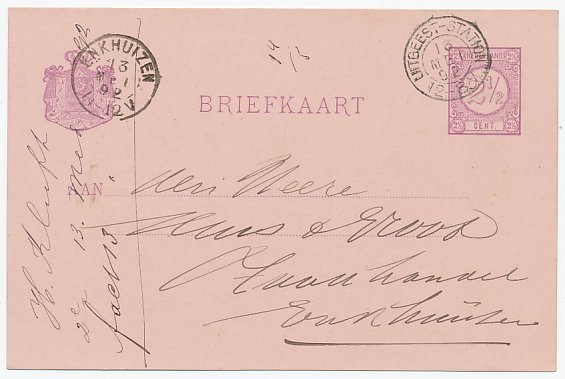 92
ENKHUIZEN
13
MEI
92
12V
14/5
UITGEEST-STATION
13
MEI
92
NEDERLAND
2½
CENT.
BRIEFKAART
AAN
den Heere
Sluis & Groot
Zaadhandel
Enkhuizen
H. Kluft
2e 13 Mei
fact 13 "